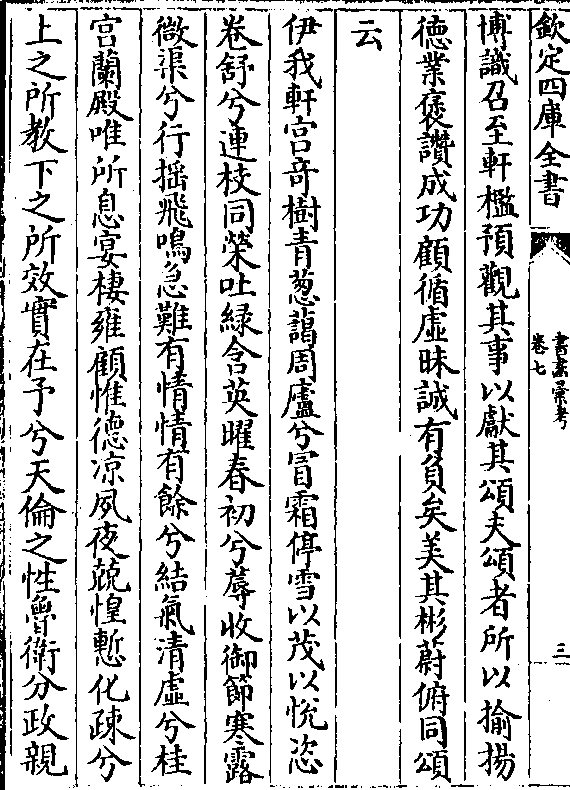 欽定四庫全書
書畫彙考
卷七
三
博識召至軒檻預觀其事以獻其頌夫頌者所以揄揚
德業褒讚成功顧循虛昧誠有負矣美其彬蔚俯同頌
云
伊我軒宮竒樹青葱藹周廬兮冒霜停雪以茂以悅恣
卷舒兮連枝同榮吐綠含英曜春初兮蓐收御節寒露
微渠兮行揺飛鳴急難有情情有餘兮結氣清虛兮桂
宮蘭殿唯所息宴棲雍顧惟德凉夙夜兢惶慙化疎兮
上之所教下之所效實在予兮天倫之性魯衛分政親